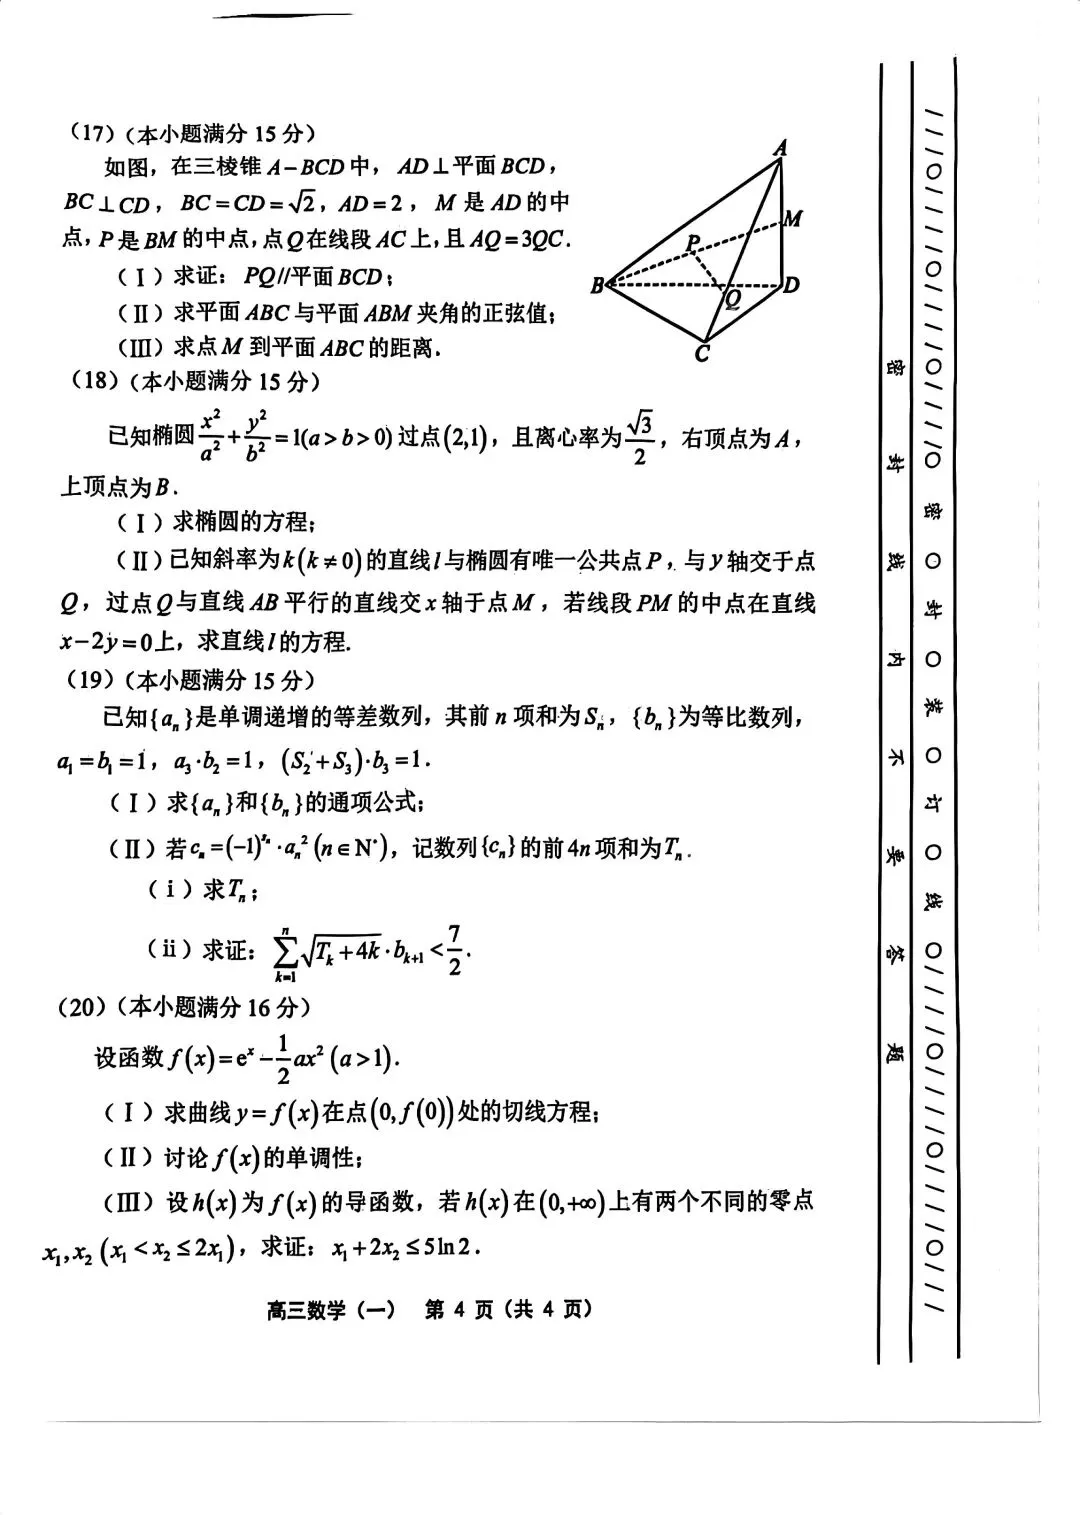 (17)(本小题满分 15 分)
如图,在三棱锥 A-BCD 中, AD⊥平面 BCD,
BC⊥CD, BC=CD=√2, AD=2, M 是 AD 的中
点,P 是 BM 的中点,点 Q 在线段 AC 上,且 AQ=3QC.
(Ⅰ)求证: PQ//平面 BCD;
(Ⅱ)求平面 ABC 与平面 ABM 夹角的正弦值;
(Ⅲ)求点 M 到平面 ABC 的距离.
A
M
P
B
Q
D
C
(18)(本小题满分 15 分)
已知椭圆 x²/a² + y²/b² = 1(a>b>0) 过点(2,1),且离心率为 √3/2,右顶点为 A,
上顶点为 B.
(Ⅰ)求椭圆的方程;
(Ⅱ)已知斜率为 k(k≠0) 的直线 l 与椭圆有唯一公共点 P,与 y 轴交于点
Q,过点 Q 与直线 AB 平行的直线交 x 轴于点 M,若线段 PM 的中点在直线
x-2y=0上,求直线 l 的方程.
(19)(本小题满分 15 分)
已知{aₙ}是单调递增的等差数列,其前 n 项和为 Sₙ,{bₙ}为等比数列,
a₁=b₁=1, a₃·b₂=1, (S₂+S₃)·b₃=1.
(Ⅰ)求{aₙ}和{bₙ}的通项公式;
(Ⅱ)若 cₙ=(-1)^{Sₙ}·aₙ² (n∈N*),记数列{cₙ}的前 4n 项和为 Tₙ.
(ⅰ)求 Tₙ;
(ⅱ)求证: ∑_{k=1}^{n} √(Tₖ+4k)·b_{k+1} < 7/2.
(20)(本小题满分 16 分)
设函数 f(x)=eˣ-1/2 ax² (a>1).
(Ⅰ)求曲线 y=f(x) 在点(0,f(0))处的切线方程;
(Ⅱ)讨论 f(x) 的单调性;
(Ⅲ)设 h(x) 为 f(x) 的导函数,若 h(x) 在 (0,+∞) 上有两个不同的零点
x₁,x₂ (x₁<x₂≤2x₁),求证: x₁+2x₂≤5ln2.
高三数学(一) 第 4 页(共 4 页)
密 封 线 内 不 要 答 题
密 ○ 封 ○ 装 ○ 订 ○ 线